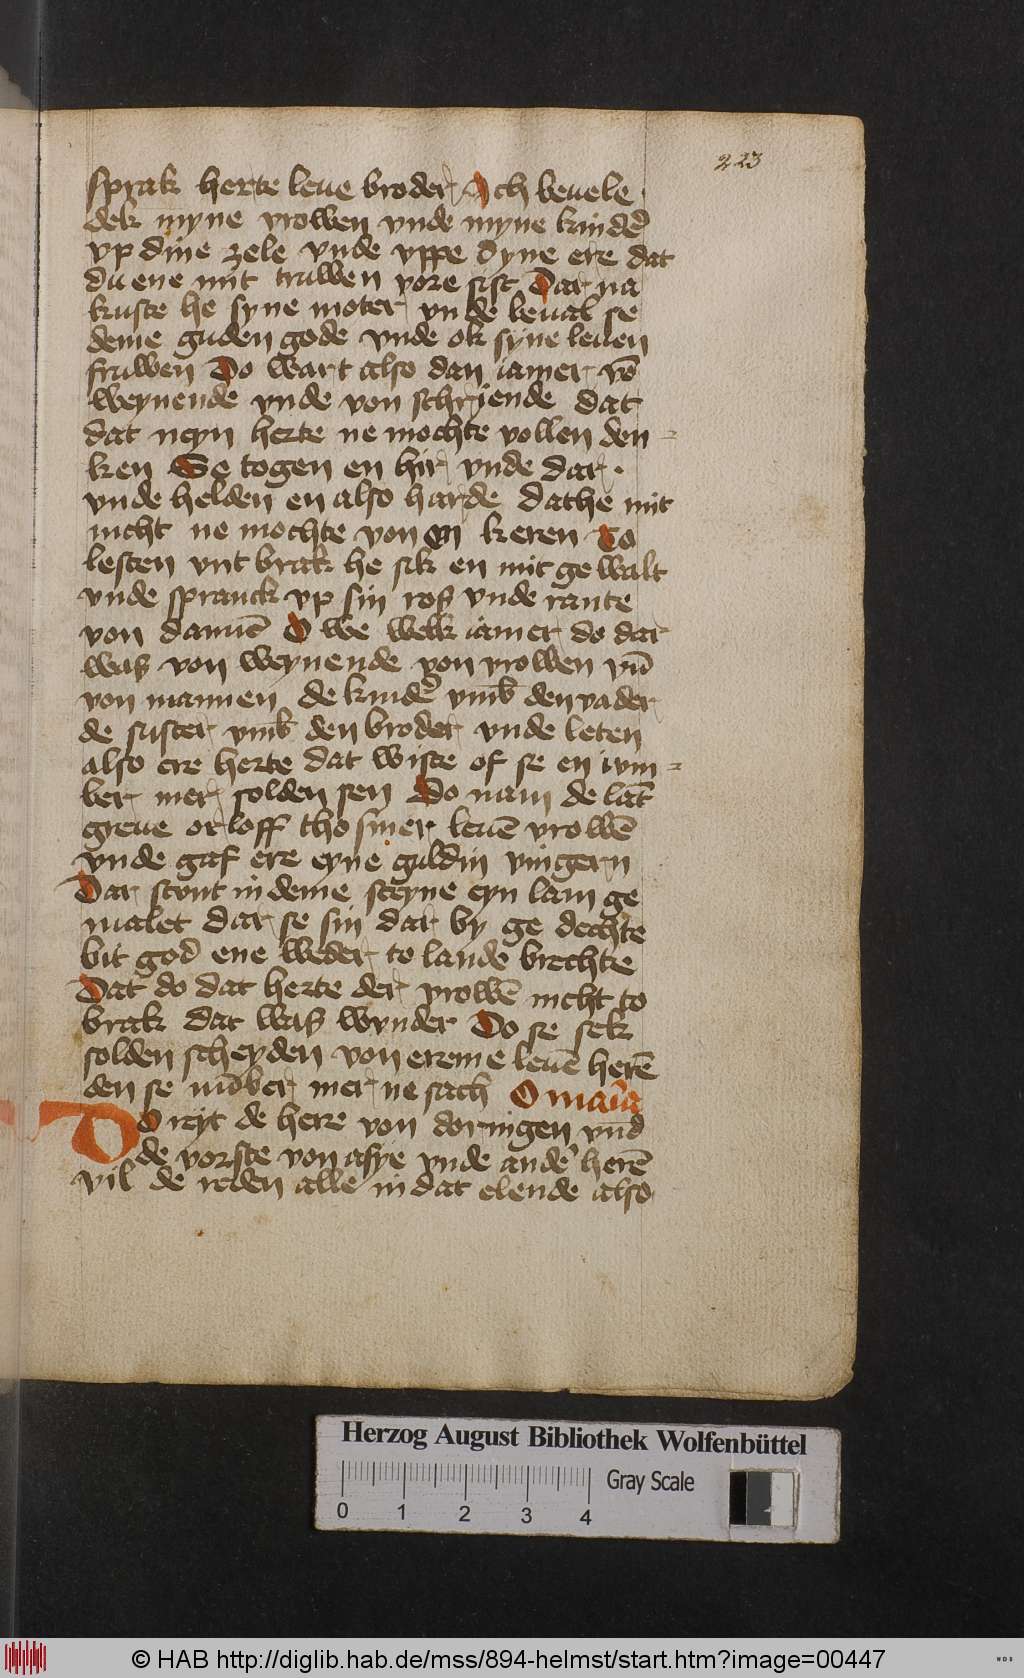 223
sprak herte leue broder Ich beuele
dek myne vrowen vnde myne kinde͛
vp dine zele vnde vppe dyne ere dat
du ene mit truwen vore sist Dar na
kuste he syne moter vnde beual se
deme guden gode vnde ok syne leuen
fruwen Do wart also dan iamer vō
weynende vnde von schryende dat
dat neyn herte ne mochte vollen den-
ken Se togen en hir vnde dar
vnde helden en also harde dat he mit
nicht ne mochte von en keren To
lesten vnt brak he sik en mit gewalt
vnde spranck vp sin roß vnde rante
von damē O we welk iamer do dar
waß von weynende von vrowen vn̄
von mannen de kinde͛ vm̄b den vader
de suster vm̄b den broder vnde leten
also ere herte dat wiste of se en ivm-
ber mer solden sen Do nam de lāt
greue orloff tho siner leuē vrowē
vnde gaf ere eyne guldin vingern
Dar stont in deme steyne eyn lam ge
malet dar se sin dar by ge dechte
bit god ene weder to lande brechte
Dat do dat herte der vrowē nicht to
brak dat waß wunder Do se sek
solden scheyden von ereme leuē herē
den se nūber mer ne sach O maria
Do reyt de here von doringen vnd
de vorste von asye vnde ande͛ herē
vil de reden alle in dat elende also
Herzog August Bibliothek Wolfenbüttel
Gray Scale
0 1 2 3 4
© HAB http://diglib.hab.de/mss/894-helmst/start.htm?image=00447